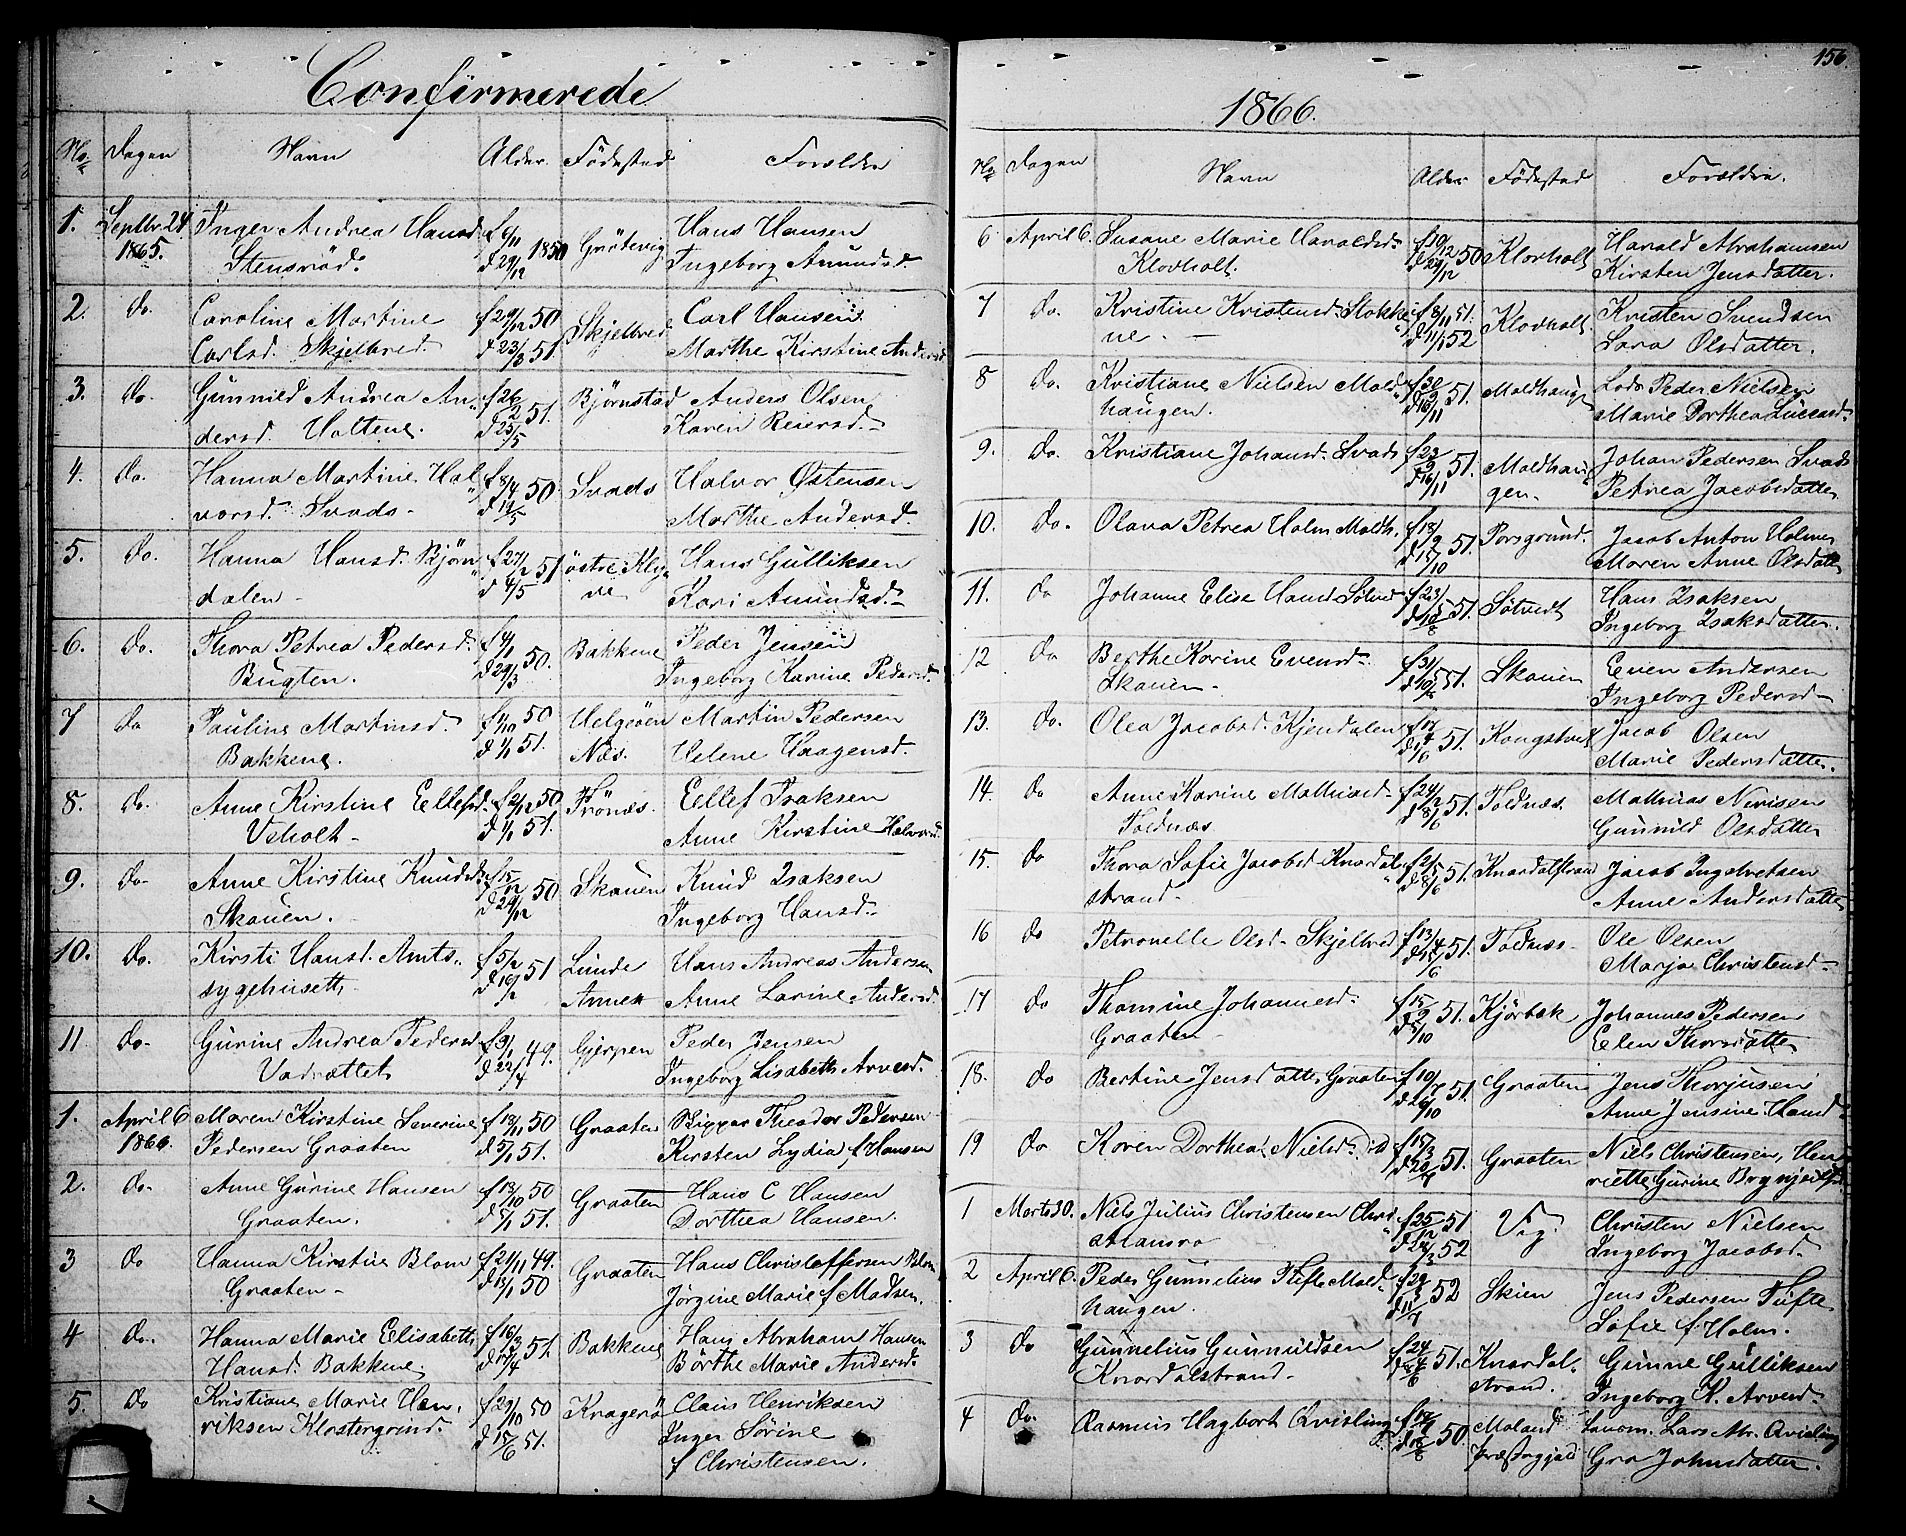 Confirmerede
No Dagen Navn Alder. Fødestad Forældre
1. Septbr. 24 1865. Inger Andrea Hansd. f 6/11 1850 Grötevig Hans Hansen
Stensröd. d 29/12 Ingeborg Amundsd.
2. do. Caroline Martine f 29/12 50 Skjelbred Carl Hansen
Carlsd. Skjelbred. d 23/3 51. Marthe Kirstine Andersd
3. do. Gunnild Andrea An- f 26/2 51. Bjørnstad Anders Olsen
dersd. Holtene. d 25/5 Karen Reiersd.
4. do. Hanna Martine Hal- f 8/4 50. Svads Halvor Østensen
vorsd. Svads. d 19/5 Marthe Andersd.
5. do. Hanna Hansd. Bjørn- f 27/2 51 östre Kly- Hans Gulliksen
dalen d 4/5 ve Kari Amundsd.
6. do. Thora Petrea Pedersd. f 4/1 50. Bakkene Peder Jensen
Bugten. d 29/3 Ingeborg Karine Pedersd.
7 do Pauline Martinsd. f 1/10 50 Helgøen Martin Pedersen
Bakkene. d 1/1 51. Næs. Helene Haagensd.
8. do. Anne Kirstine Eellefsd. f 2/12 50 Trönæs. Eellef Isaksen
Veholt d 1/1 51. Anne Kirstine Halvorsd.
9. do. Anne Kirstine Knudsd. f 15/12 50 Skauen Knud Isaksen
Skauen. d 29/12 Ingeborg Hansd.
10. do. Kirsti Hansd. Amts- f 5/2 51 Lunde Hans Andreas Andersen
sygehusett. d 16/2 Annex Anne Larine Andersd.
11 do. Gurine Andrea Pedersd f 31/1 49. Gjerpen Peder Jensen
Vadrættet d 22/4 Ingeborg Lisabeth Arvesd.
1. April 6 1866. Maren Kirstine Severine f 18/11 50 Graaten Skipper Theodor Pedersen
Pedersen Graaten d 5/1 51. Kirsten Lydia f Hansen
2. do. Anne Gurine Hansen f 13/10 50 Graaten Hans C Hansen
Graaten. d 5/1 51. Dorthea Hansen.
3 do Hanna Kirstine Blom f 21/11 49. Graaten Hans Christoffersen Blom
Graaten d 13/1 50 Jørgine Marie f Madsen.
4 do. Hanna Marie Elisabeth f 16/3 51. Bakkene Hans Abraham Hansen
Hansd. Bakkene. Børthe Marie Andersd.
5. do Kristiane Marie Hen- f 29/10 50 Kragerø Claus Henriksen
riksen Klostergrind. d 15/6 51. Inger Sørine
f Christensen.
156
1866.
No Dagen Navn Alder Fødestad Forældre.
6 April 6. Susane Marie Haraldsd. f 10/12 50 Klovholt Harald Abrahamsen
Klovholt. d 29/12 Kirsten Jensdatter.
7 do. Kristine Kristensd. Stokke- f 8/11 51. Klovholt. Kristen Svendsen
ne. d 11/1 52 Sara Olsdatter.
8 do. Kristiane Nielsen Mold- 51. Moldhaugen Lods Peder Nielsen
haugen. Marie Dorthea
9. do. Kristiane Johansd. Svads f 23/9 51. Moldhau- Johan Pedersen Svads
d 16/11 gen. Petrea Jacobsdatter
10. do. Olava Petrea Holm Moldh. f 18/9 51. Porsgrund. Jacob Anton Holm
d 15/10 Maren Anne Olsdatter
11. do Johanne Elise Hansd Sölvedt 51. Sölvedt Hans Isaksen
Ingeborg Isaksdatter.
12 do Berthe Karine Evensd. f 31/5 51. Skauen Even Andersen
Skauen. Ingeborg Pedersd
13. do. Olea Jacobsd. Kjendalen f 17/4 51. Kongstvet Jacob Olsen
Marie Pedersdatter.
14. do Anne Karine Mathiasd. f 24/2 51. Toldnæs. Mathias Nirisen
Toldnæs d 8/6 Gunnild Olsdatter
15. do Thora Sofie Jacobsd Knardal- 51. Knardalstrand Jacob Ingebretsen
strand. d 8/6 Anne Andersdatter
16 do Petronelle Olsd. Skjelbred f 13/4 51. Toldnæs. Ole Olsen
d 15/6 Marja Christensd.
17 do Thomine Johannesd. f 15/2 51. Kjörbæk Johannes Pedersen
Graaten Elen Thorsdatter
18. do Bertine Jensdatter Graaten f 10/7 51. Graaten Jens Thorjusen
d 26/10 Anne Jensine Hansd.
19 do Karen Dorthea Nielsd. f 15/3 51. Graaten Niels Christensen, Hen-
riette Gurine
1 Marts 30. Niels Julius Christensen f 25/12 51 Vig Christen Nielsen
d 28/3 52 Ingeborg Jacobsd.
2 April 6. Peder Gunnelius Tufte Mold- f 29/3 52 Skien Jens Pedersen Tufte
haugen. d 11/7 Sofie f Holm.
3 do Gunnelius Gunnuldsen f 24/4 51. Knardal- Gunne Gulliksen
Knardalstrand. strand. Ingeborg K. Arvesd.
4 do. Rasmus Hagbart Qvisling 50 Moland Lars Abr. Qvisling
Præstegjeld Gro Johnsdatter.